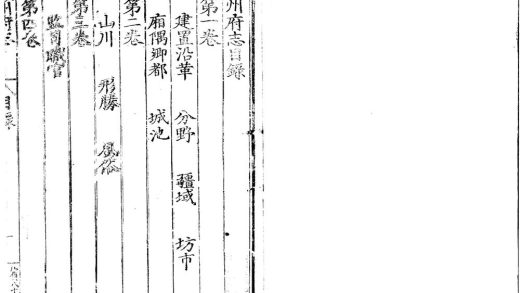 州府志目錄
第一卷
建置沿革 分野 疆域 坊市
廂隅鄉都 城池
第二卷
山川 形勝 風俗
第三卷
監司職官
第四卷
州府志 目錄